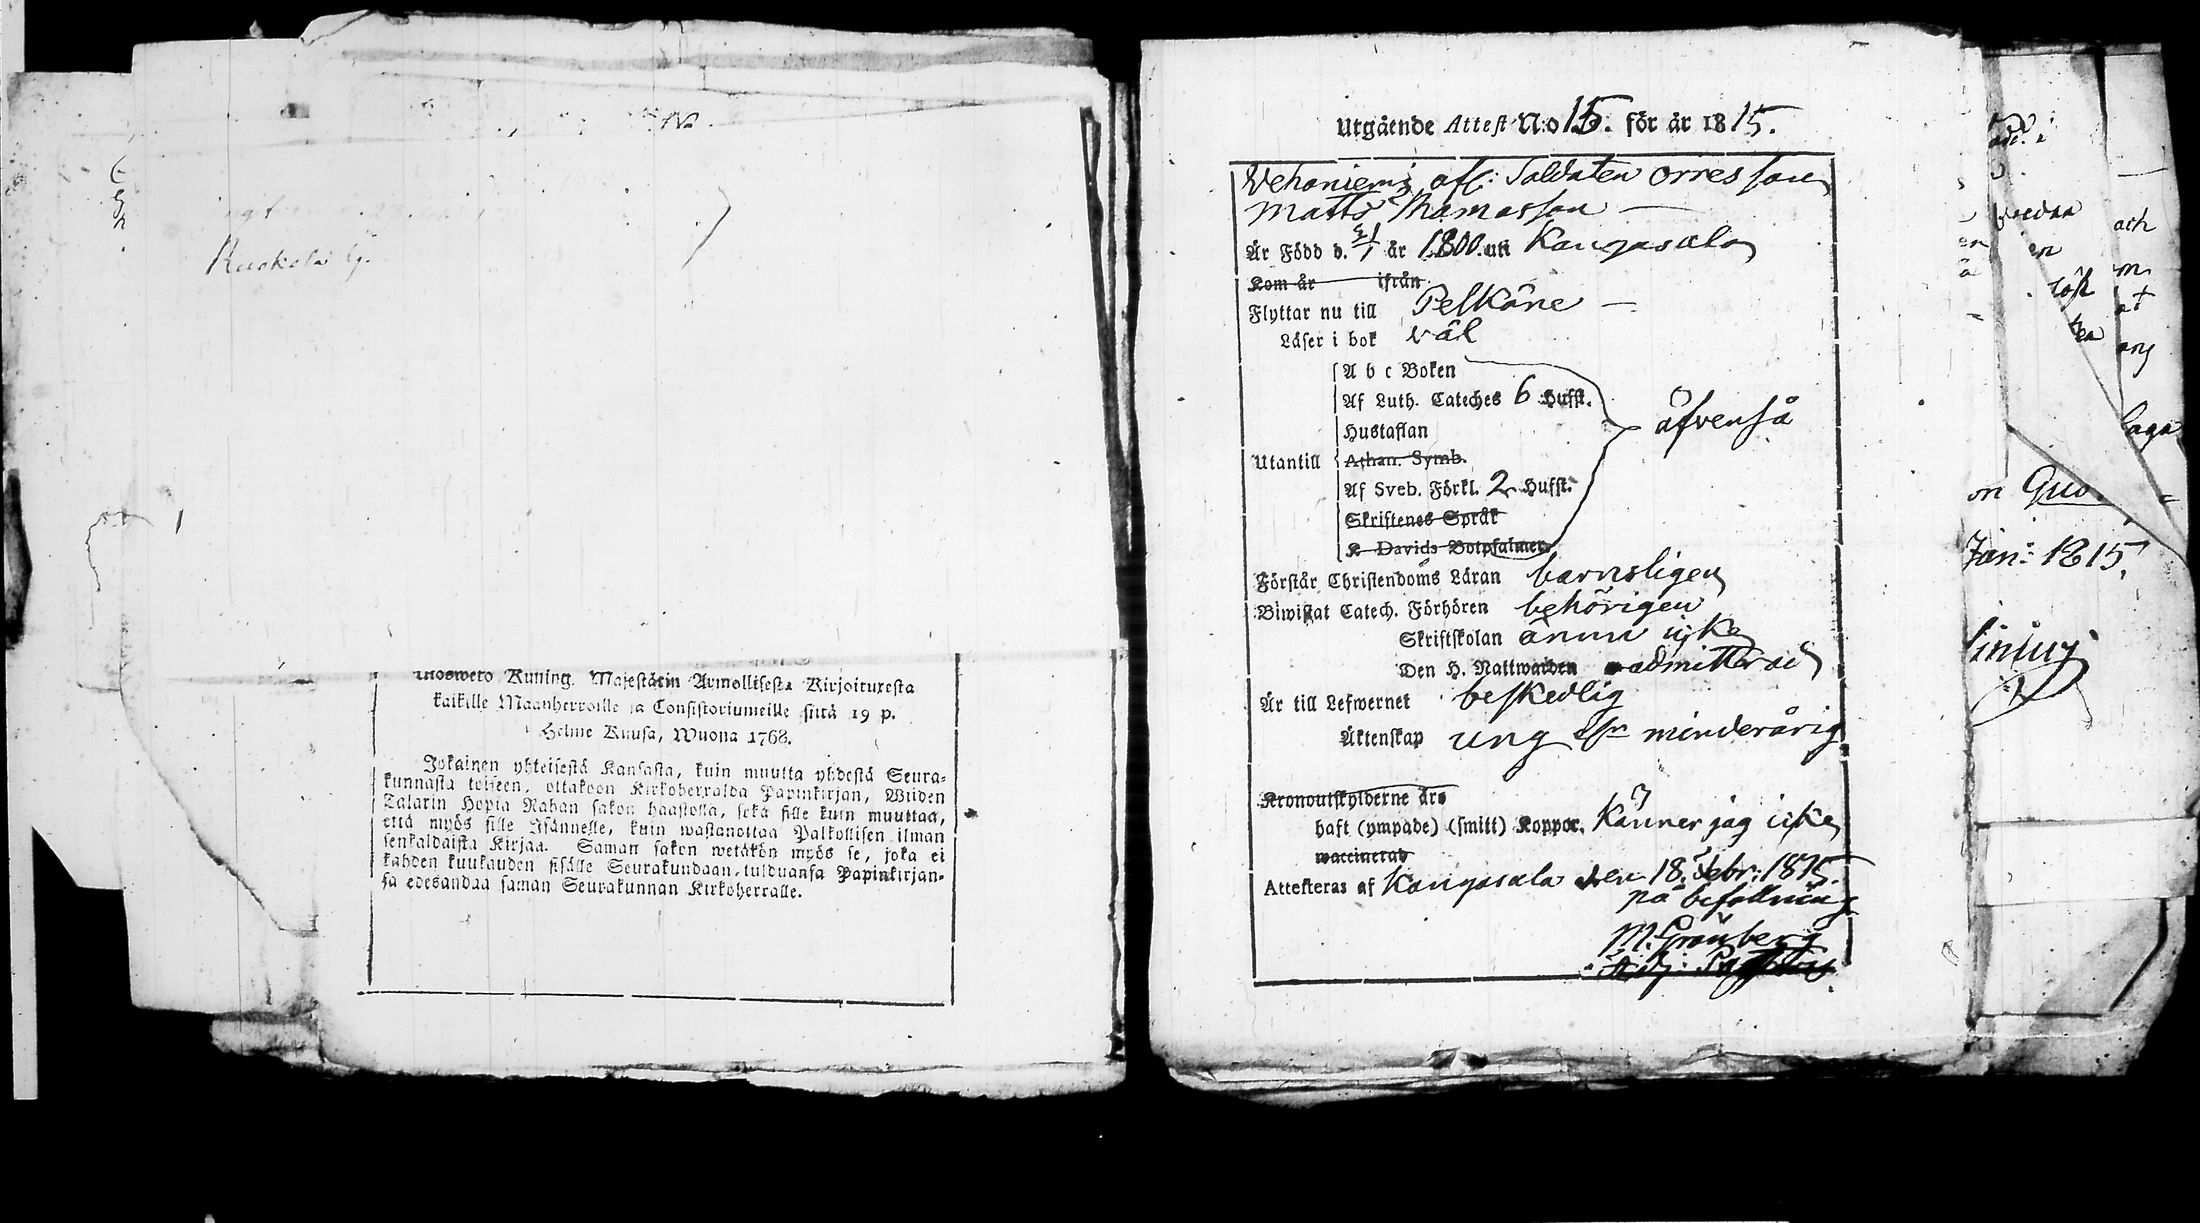 Kuokola by.
Ulosweto Kuning. Majestätin Armollisesta Kirjoituxesta
kaikille Maanherroille ja Consistoriumeille siitä 19 p.
Helme Kuusa, Wuona 1768.
Jokainen yhteisestä Kansasta, kuin muutta yhdestä Seura-
kunnasta toiseen, ottakoon Kirkoherralda Papinkirjan, Wiiden
Talarin Hopia Rahan sakon haastolla, sekä sille kuin muuttaa,
että myös sille Isännelle, kuin wastanottaa Palkollisen ilman
senkaldaista Kirjaa. Saman sakon wetäkön myös se, joka ei
kahden kuukauden sisälle Seurakundaan, tulduansa Papinkirjan-
sa edesandaa saman Seurakunnan Kirkoherralle.
Utgående Attest N:o 15. för år 1815.
Vehoniemi afl: Soldaten Orres son
Matts Thomasson
Är Född d. 21/1 år 1800. uti Kangasala
Kom år ifrån
Flyttar nu till Pelkäne
Läser i bok väl
A b c Boken
Af Luth. Cateches 6 Hufst.
Hustaflan
äfvenså
Utantill Athan. Symb.
Af Sveb. Förkl. 2 Hufst.
Skriftenes Språk
K Davids Botpsalmer
Förstår Christendoms Läran barnsligen
Biwistat Catech. Förhören behörigen
Skriftskolan ännu icke
Den H. Nattwarden admitterad
Är till Lefwernet beskedlig
Äktenskap ung minderårig
Kronoutskylderne äro
haft (ympade) (smitt) Koppor. Känner jag icke
waccinerad
Attesteras af Kangasala den 18. Febr: 1815.
på befallning
M. Grönberg
Jan: 1815.